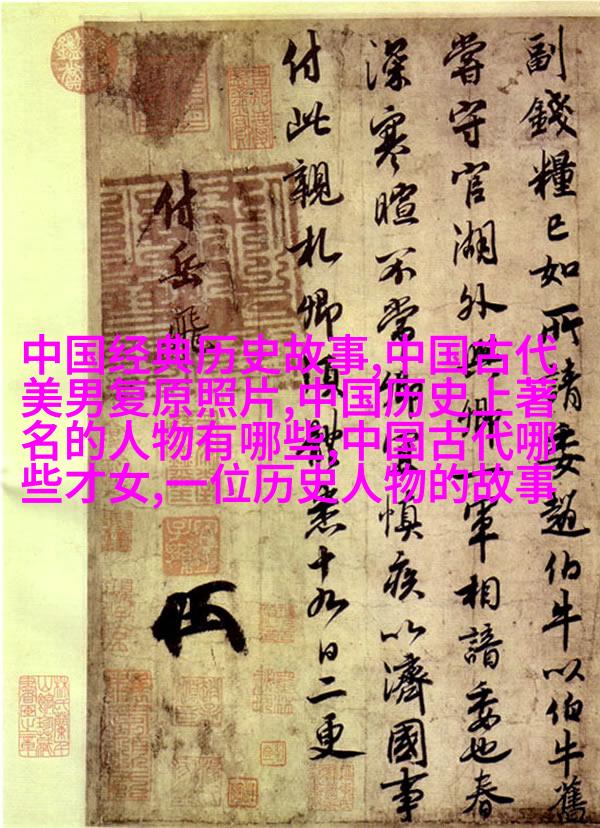 中国经典历史故事,中国古代
美男复原照片,中国历史上著
名的人物有哪些,中国古代哪
些才女,一位历史人物的故事
副錢糧已如所請委趙伯牛以伯牛舊
嘗守官湖外與卿一軍相諳委也春
深寒暄不常卿宜慎疾以濟國事
付此親札卿須體悉十九日二更
付岳飛